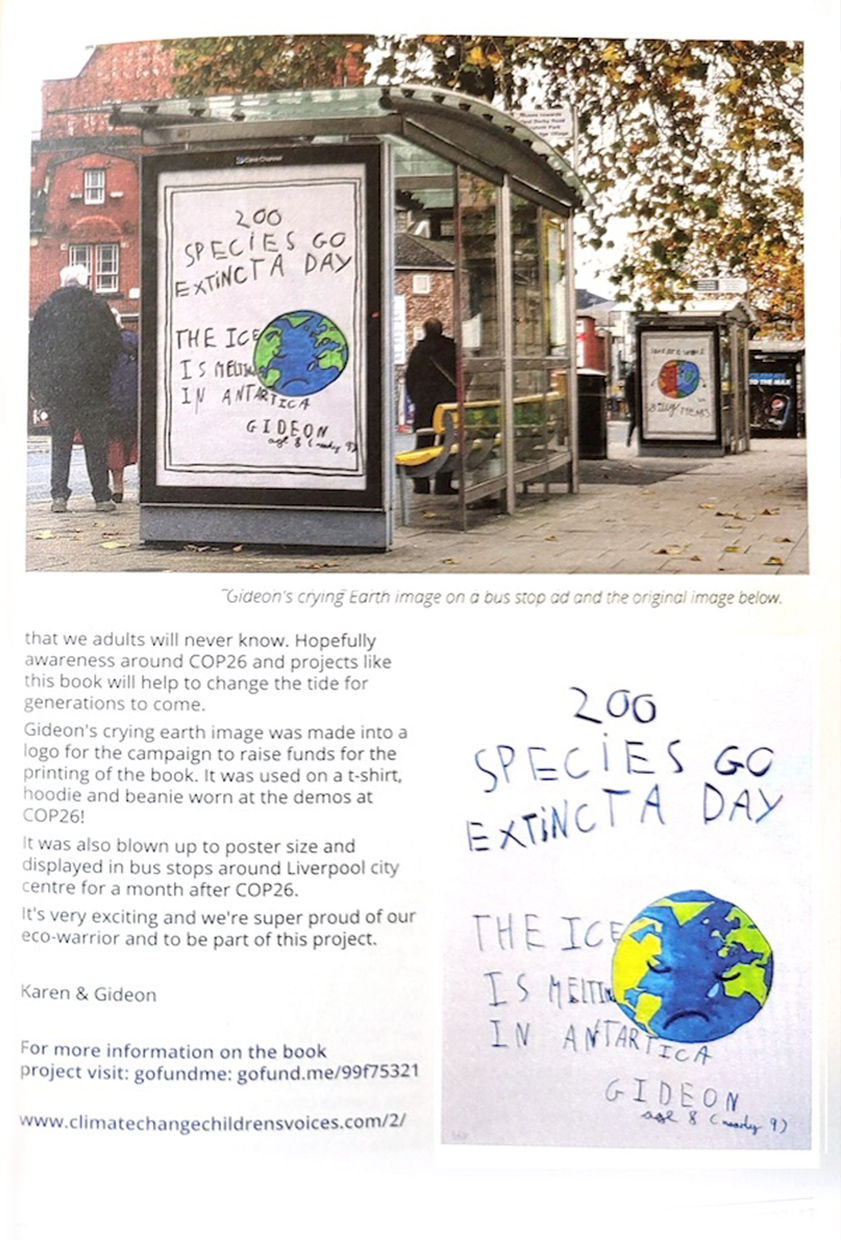 Clear Channel
200
SPECIES GO
EXTINCT A DAY
THE ICE
IS MELTIN
IN ANTARTICA
GIDEON
age 8 (nearly 9)
TO THE MAX
"Gideon's crying Earth image on a bus stop ad and the original image below.
that we adults will never know. Hopefully
awareness around COP26 and projects like
this book will help to change the tide for
generations to come.
Gideon's crying earth image was made into a
logo for the campaign to raise funds for the
printing of the book. It was used on a t-shirt,
hoodie and beanie worn at the demos at
COP26!
It was also blown up to poster size and
displayed in bus stops around Liverpool city
centre for a month after COP26.
It's very exciting and we're super proud of our
eco-warrior and to be part of this project.
Karen & Gideon
For more information on the book
project visit: gofundme: gofund.me/99f75321
www.climatechangechildrensvoices.com/2/
200
SPECIES GO
EXTINCT A DAY
THE ICE
IS MELTIN
IN ANTARTICA
GIDEON
age 8 (nearly 9)